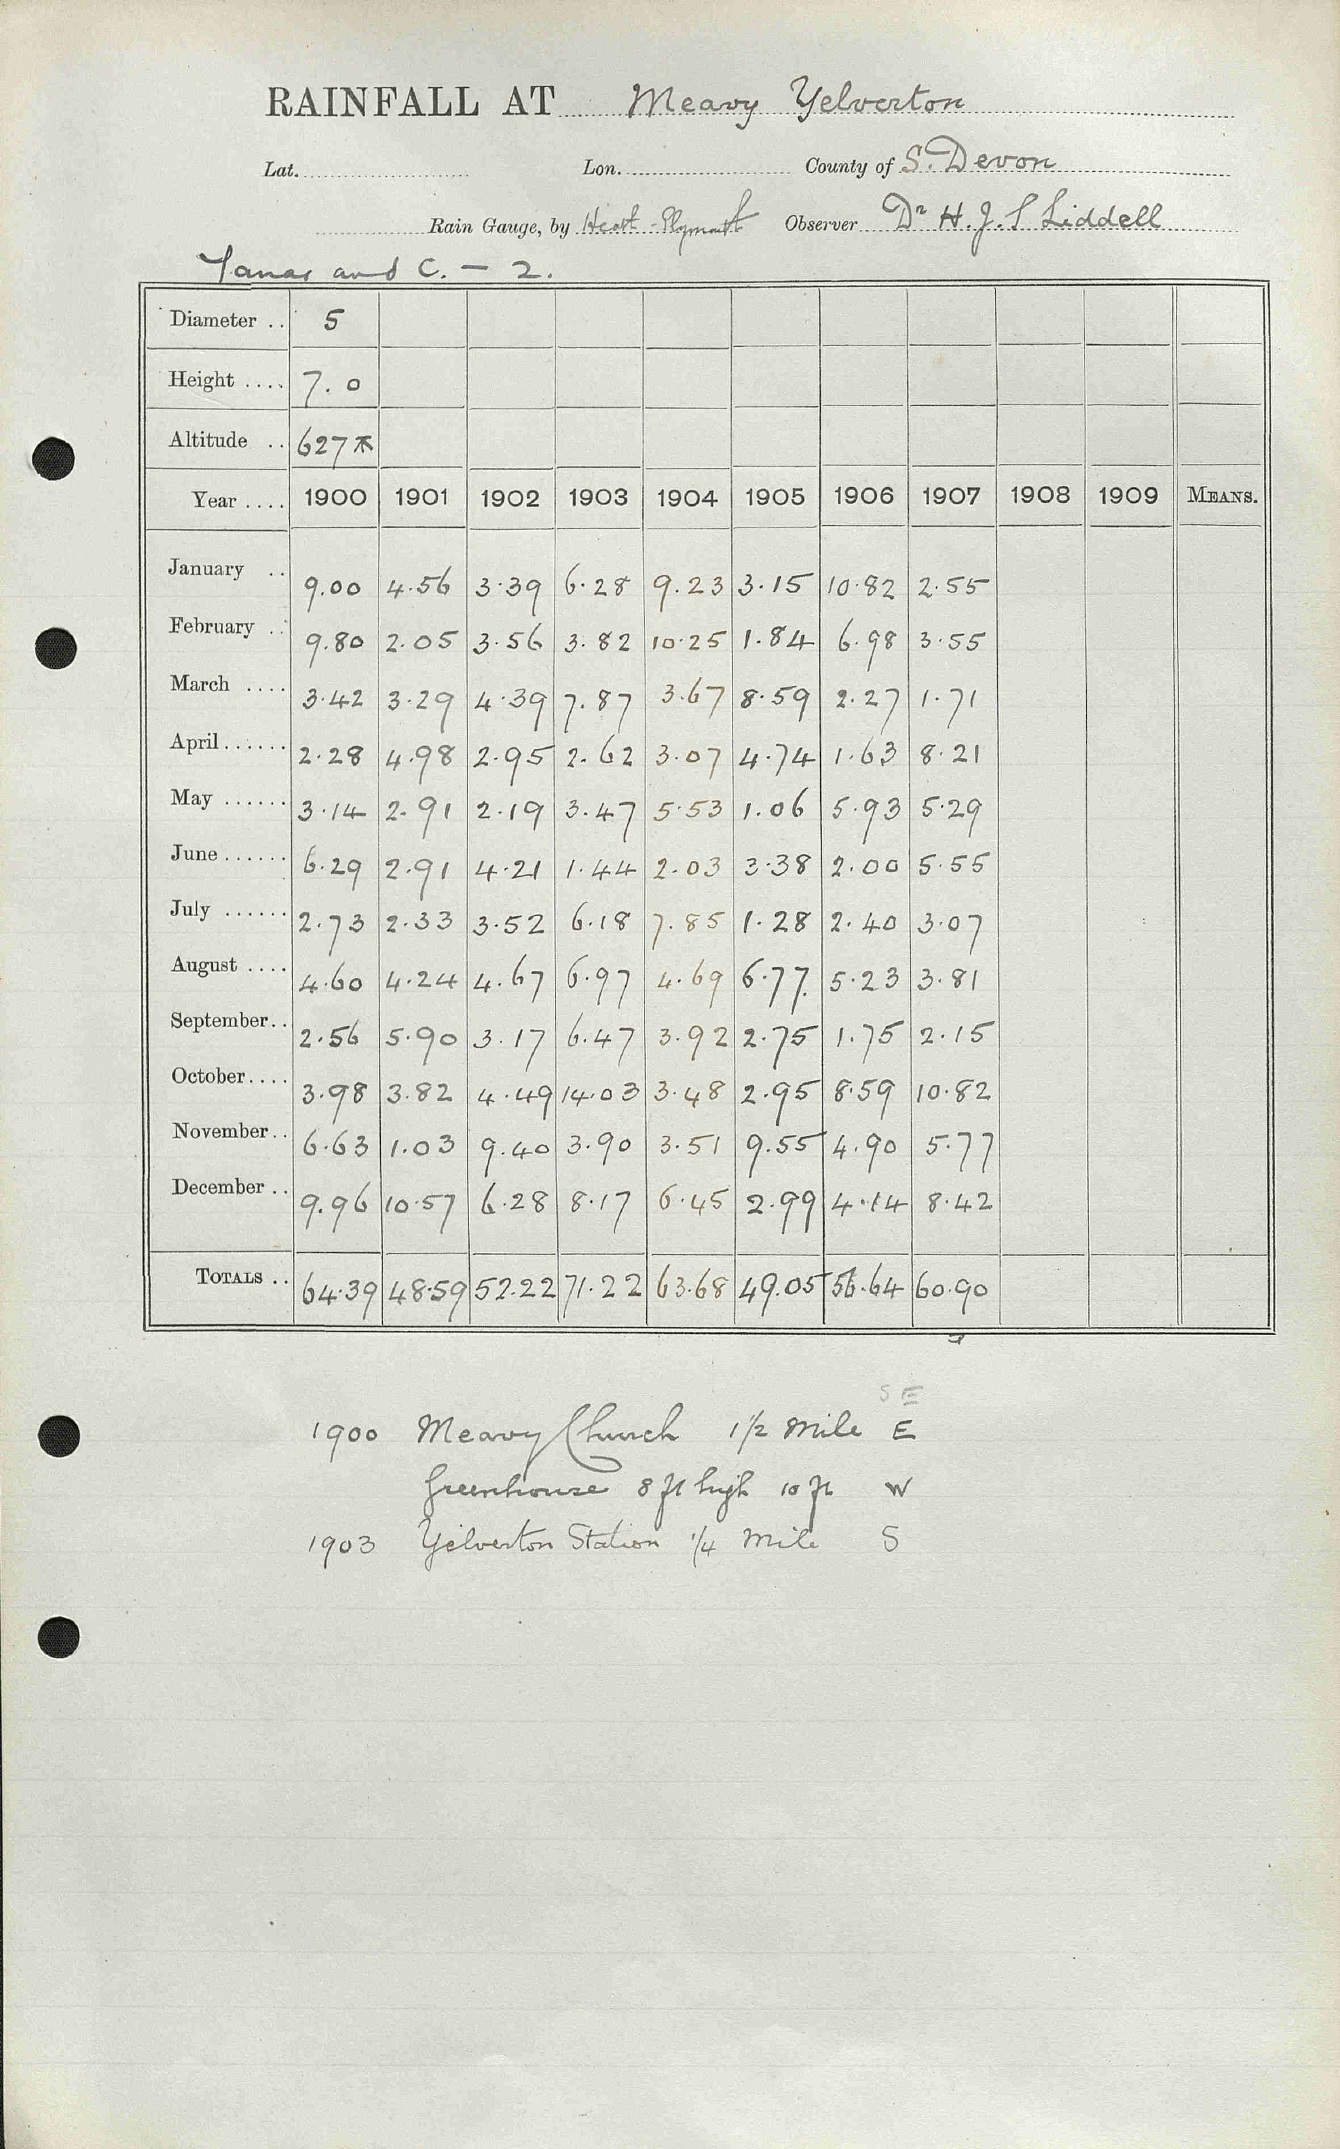 RAINFALL AT Meavy Yelverton
Lat. Lon. County of S. Devon
Rain Gauge, by Heath - Plymouth Observer Dr H. J. S Liddell
and C. — 2.
Diameter .. 5
Height .... 7. 0
Altitude .. 627
Year .... 1900 1901 1902 1903 1904 1905 1906 1907 1908 1909 MEANS.
January .. 9.00 4.56 3.39 6.28 9.23 3.15 10.82 2.55
February .. 9.80 2.05 3.56 3.82 10.25 1.84 6.98 3.55
March .... 3.42 3.29 4.39 7.87 3.67 8.59 2.27 1.71
April...... 2.28 4.98 2.95 2.62 3.07 4.74 1.63 8.21
May ...... 3.14 2.91 2.19 3.47 5.53 1.06 5.93 5.29
June...... 6.29 2.91 4.21 1.44 2.03 3.38 2.00 5.55
July ...... 2.73 2.33 3.52 6.18 7.85 1.28 2.40 3.07
August .... 4.60 4.24 4.67 6.97 4.69 6.77 5.23 3.81
September.. 2.56 5.90 3.17 6.47 3.92 2.75 1.75 2.15
October.... 3.98 3.82 4.49 14.03 3.48 2.95 8.59 10.82
November.. 6.63 1.03 9.40 3.90 3.51 9.55 4.90 5.77
December .. 9.96 10.57 6.28 8.17 6.45 2.99 4.14 8.42
TOTALS .. 64.39 48.59 52.22 71.22 63.68 49.05 56.64 60.90
S E
1900 Meavy Church 1 1/2 Mile E
Greenhouse 8 ft high 10 ft W
1903 Yelverton Station 1/4 Mile S